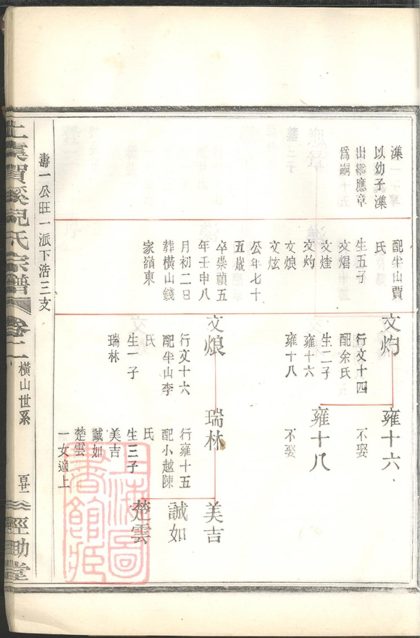 漢
以幼子漢
出繼應章
爲嗣
配半山賈
氏
生五子
文熠
文煃
文灼
文烺
文炫
公年七十
五歲
卒崇禎五
年壬申八
月初二日
葬橫山錢
家嶺東
文灼
行文十四
配余氏
生二子
雍十六
雍十八
文烺
行文十六
配半山李
氏
生一子
瑞林
雍十六
不娶
雍十八
不娶
瑞林
行雍十五
配小越陳
氏
生三子
美吉
誠如
楚雲
一女適上
美吉
誠如
楚雲
壽一公旺一派下浩三支
上虞賀溪倪氏宗譜
卷二
橫山世系
經助堂
上海圖書館藏